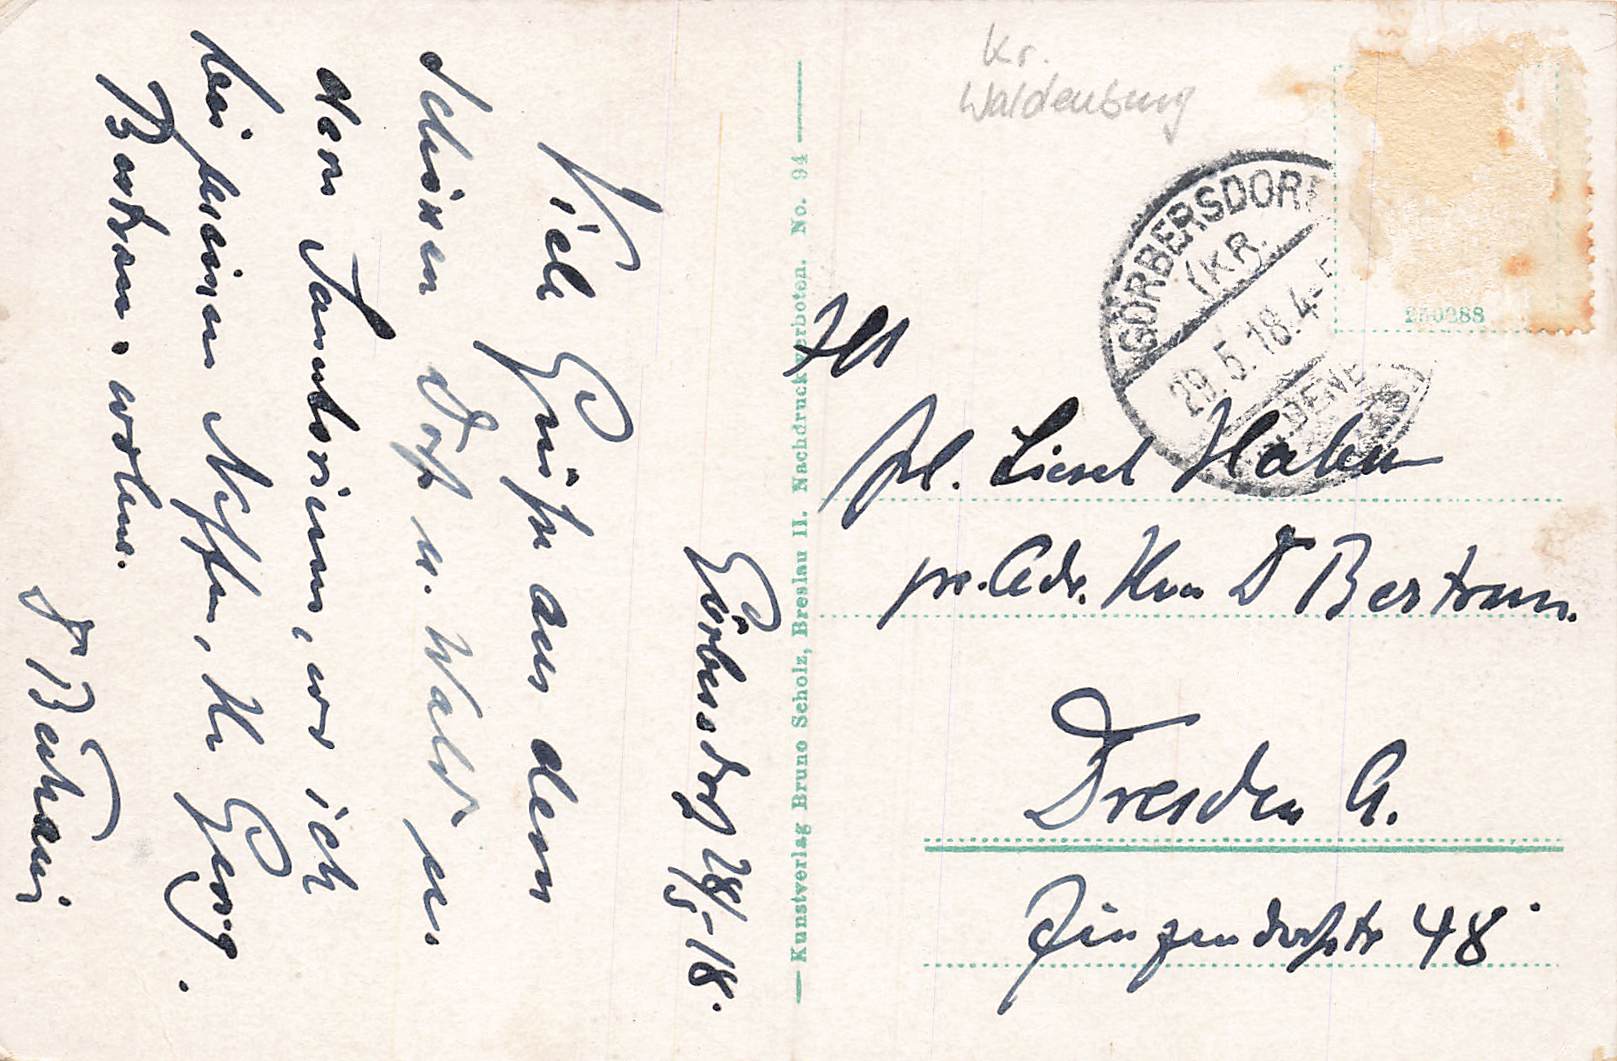 Görbersdorf 28/5-18.
Viele Grüße aus dem
schönen Dorf u. Wald u.
dem Sanatorium, wo ich
bei meinem Neffen, Hr Georg
Bertram, wohne.
Dr Bertram
Kunstverlag Bruno Scholz, Breslau II. Nachdruck verboten. No. 94
Kr.
Waldenburg
GÖRBERSDORF
(KR.
29.5.18.4-5
250288
Frl. Liesel Hahn
pr. Adr. Herrn Dr Bertram.
Dresden A.
Zinzendorfstr 48